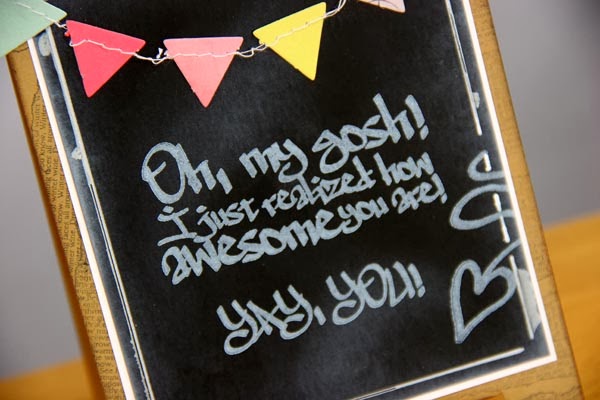 Oh, my gosh!
I just realized how
awesome you are!
YAY, YOU!